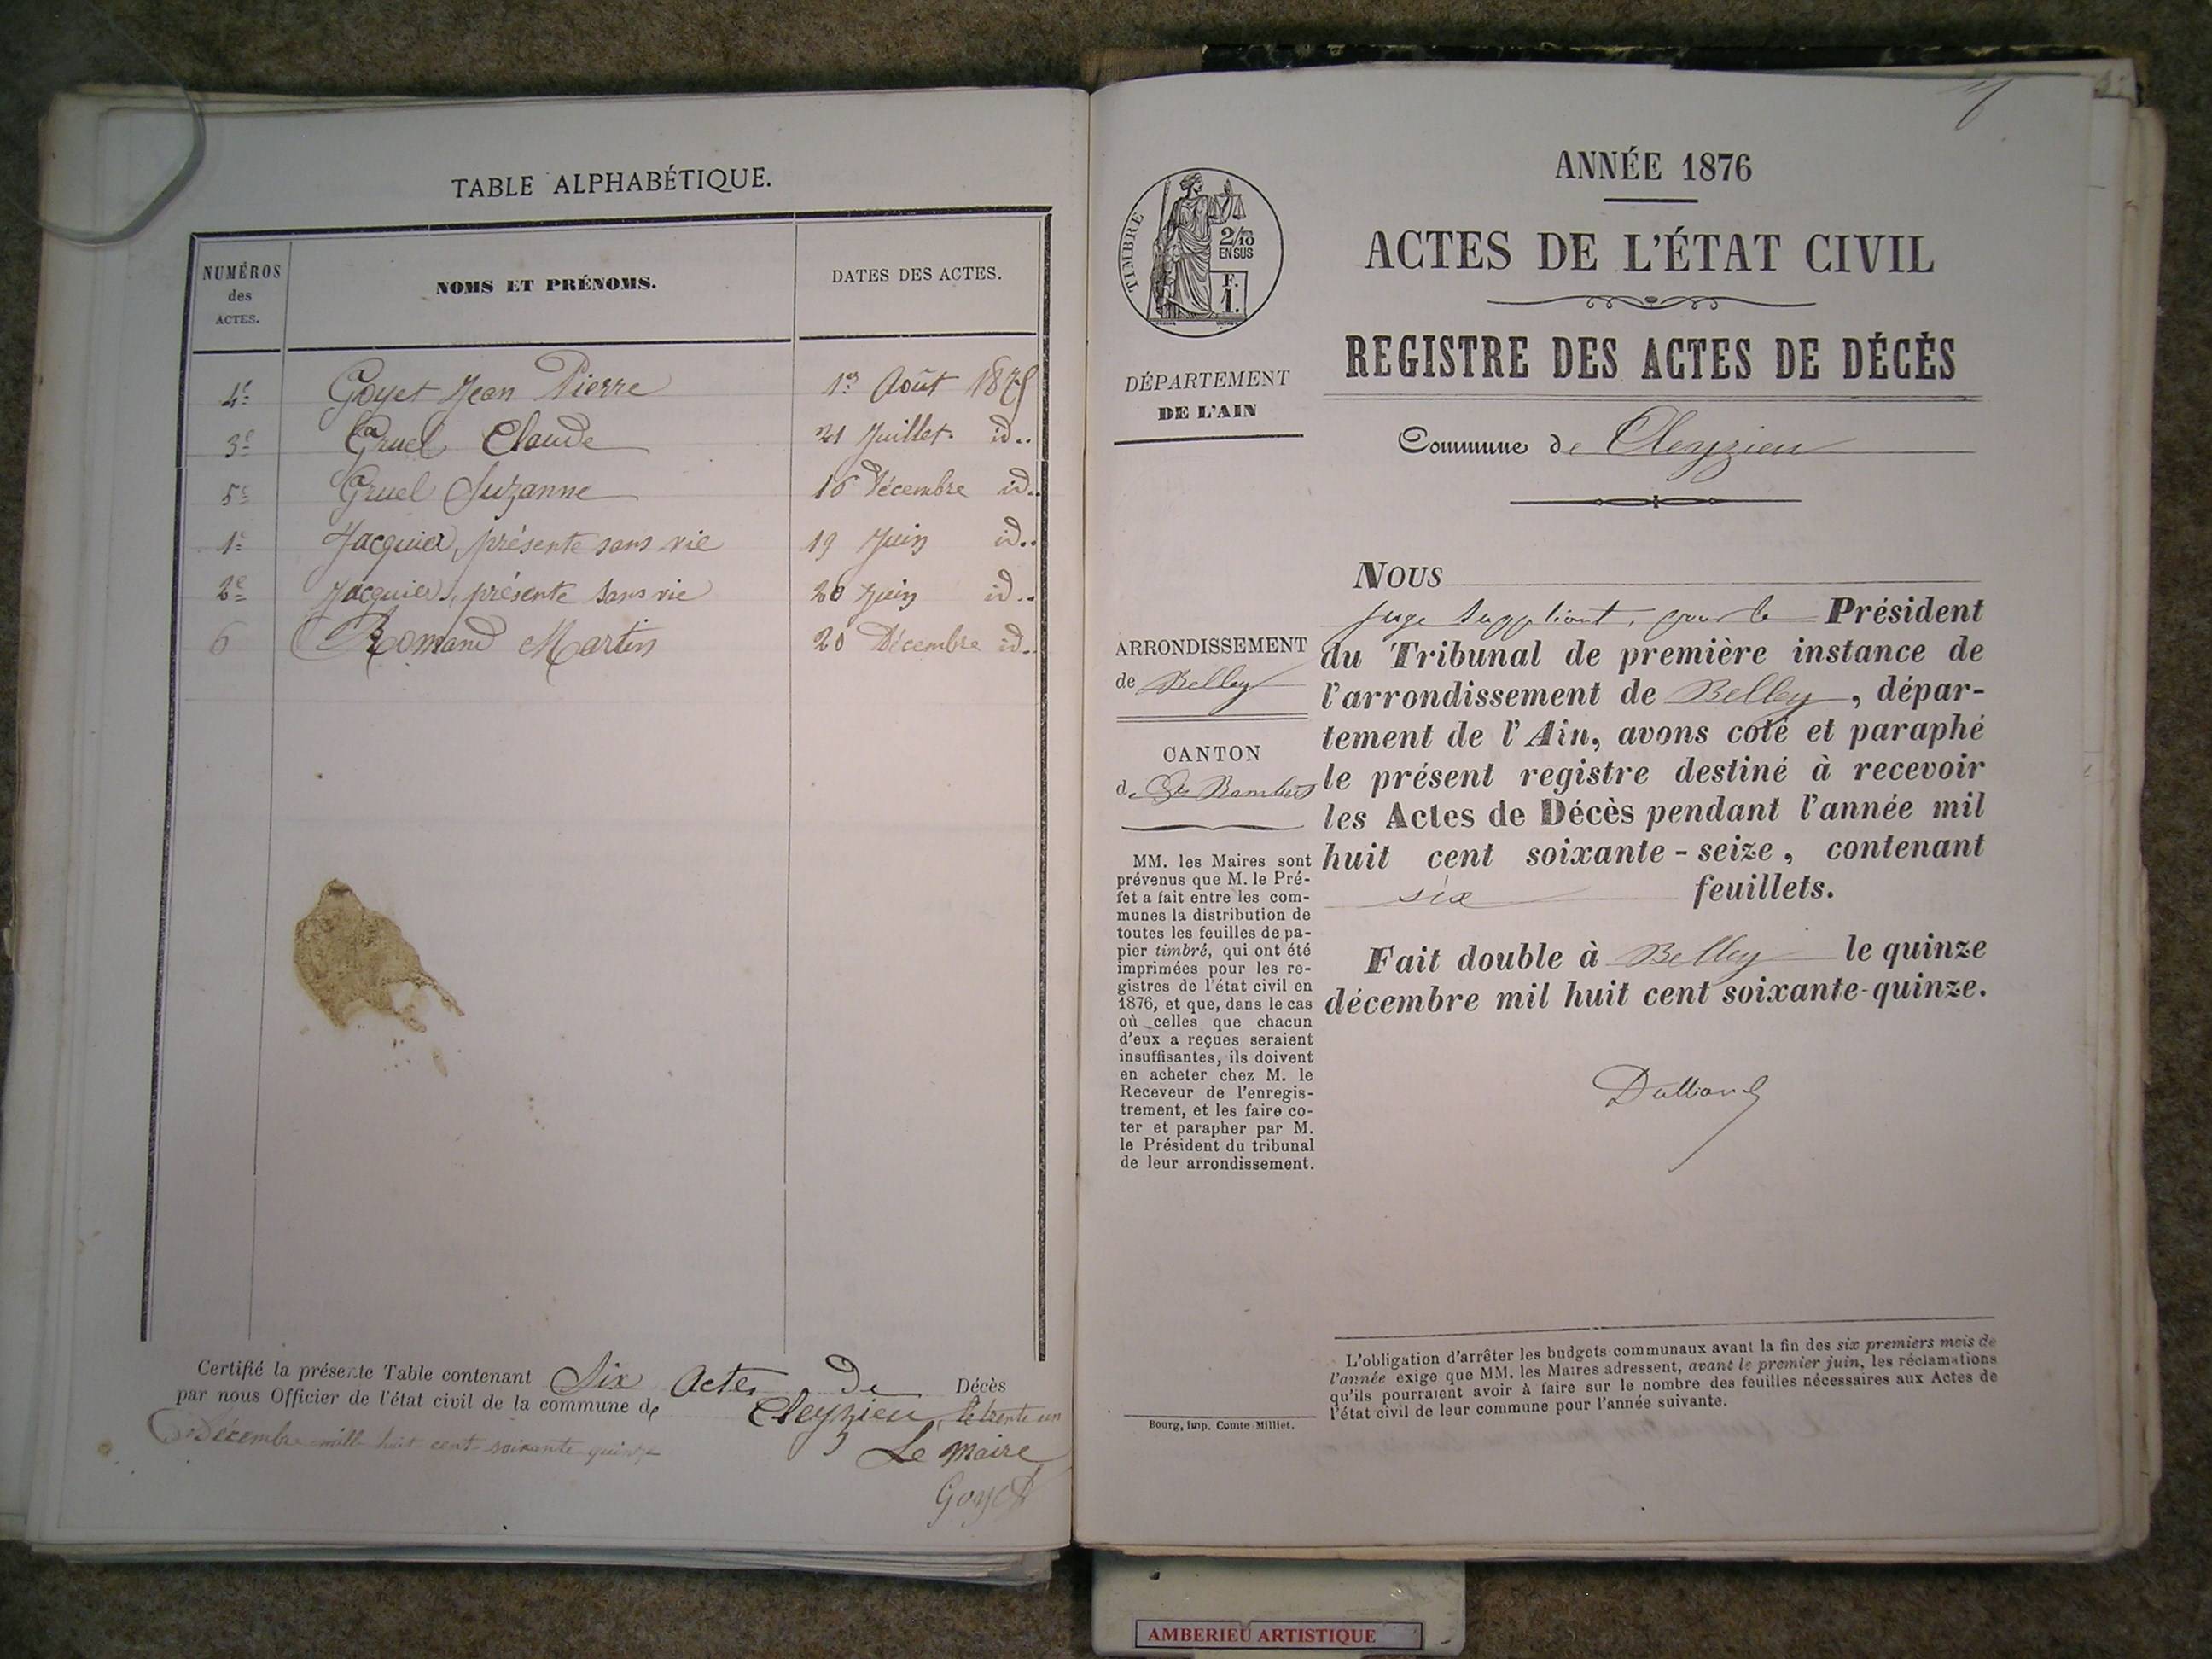 TABLE ALPHABÉTIQUE.
NUMÉROS des ACTES.
NOMS ET PRÉNOMS.
DATES DES ACTES.
4e Goyet Jean Pierre 1er Août 1875
3e Gruel Claude 21 Juillet id..
5e Gruel Suzanne 16 Décembre id..
1e Jacquier, présente sans vie 19 Juin id..
2e Jacquier, présente sans vie 20 Juin id..
6 Romand Martin 20 Décembre id..
Certifié la présente Table contenant Six Actes de Décès
par nous Officier de l'état civil de la commune de Cleyzieu, le trente un
Décembre mill huit cent soixante quinze
Le Maire
Goyet
ANNÉE 1876
ACTES DE L'ÉTAT CIVIL
REGISTRE DES ACTES DE DÉCÈS
Commune de Cleyzieu
TIMBRE
2/10
EN SUS
F.
1.
DÉPARTEMENT
DE L'AIN
ARRONDISSEMENT
de Belley
CANTON
de St Rambert
MM. les Maires sont
prévenus que M. le Pré-
fet a fait entre les com-
munes la distribution de
toutes les feuilles de pa-
pier timbré, qui ont été
imprimées pour les re-
gistres de l'état civil en
1876, et que, dans le cas
où celles que chacun
d'eux a reçues seraient
insuffisantes, ils doivent
en acheter chez M. le
Receveur de l'enregis-
trement, et les faire co-
ter et parapher par M.
le Président du tribunal
de leur arrondissement.
Bourg, imp. Comte-Milliet.
NOUS
juge suppléant, pour le Président
du Tribunal de première instance de
l'arrondissement de Belley, dépar-
tement de l'Ain, avons coté et paraphé
le présent registre destiné à recevoir
les Actes de Décès pendant l'année mil
huit cent soixante-seize, contenant
six feuillets.
Fait double à Belley le quinze
décembre mil huit cent soixante-quinze.
L'obligation d'arrêter les budgets communaux avant la fin des six premiers mois de
l'année exige que MM. les Maires adressent, avant le premier juin, les réclamations
qu'ils pourraient avoir à faire sur le nombre des feuilles nécessaires aux Actes de
l'état civil de leur commune pour l'année suivante.
AMBERIEU ARTISTIQUE